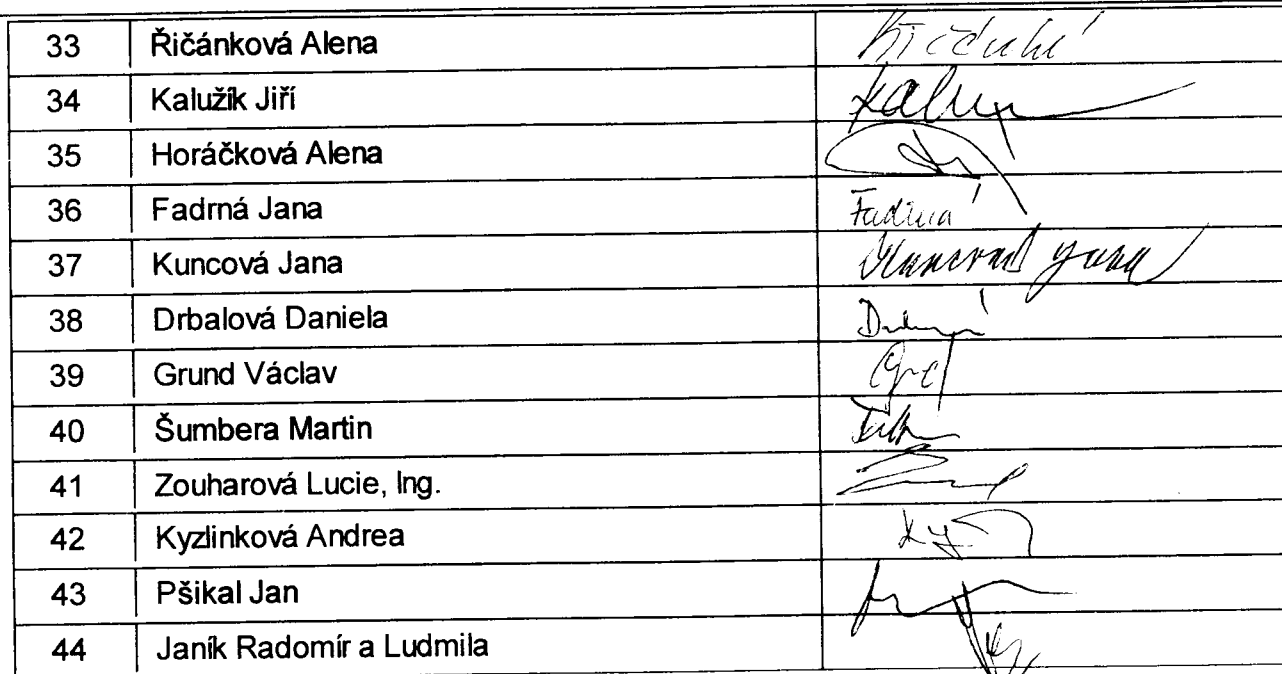 33 Řičánková Alena
34 Kalužík Jiří
35 Horáčková Alena
36 Fadrná Jana Fadrná
37 Kuncová Jana Kuncová Jana
38 Drbalová Daniela
39 Grund Václav
40 Šumbera Martin
41 Zouharová Lucie, Ing.
42 Kyzlinková Andrea
43 Pšikal Jan
44 Janík Radomír a Ludmila